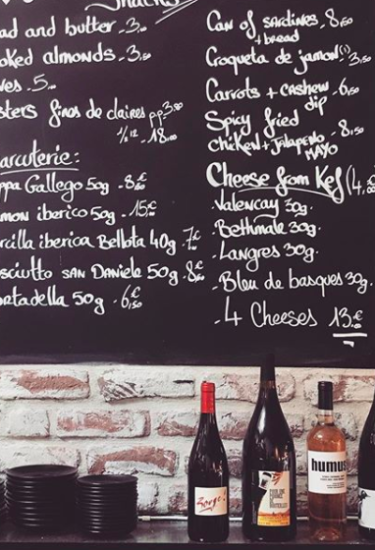 Snacks
and butter - 3.50
almonds - 3.50
- 5.-
fines de claires pp 3.80
1/2 12 - 18.00
Coppa Gallego 50g - 8€
iberico 50g - 15€
iberica Bellota 40g - 7€
SAN DANiele 50g - 8€
50g - 6€
Can of SARDINES - 8.50
+ bread
Croqueta de jamon (1) - 3.50
Carrots + CASHEW - 6.50
dip
Spicy fried
chicken + jalapeño - 8.50
MAYO
Cheese from Kef (4,
Valencay 30g.
Bethmale 30g.
- Langres 30g.
- Bleu de basques 30g.
- 4 Cheeses 13.€
humus